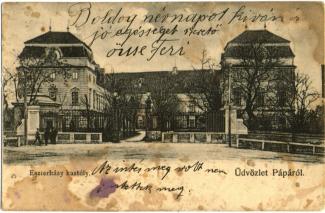 Boldog névnapot kíván s
jó egésséget szerető
öcse Feri
Eszterházy kastély.
Üdvözlet Pápáról.
Az intés meg volt nem
meg.